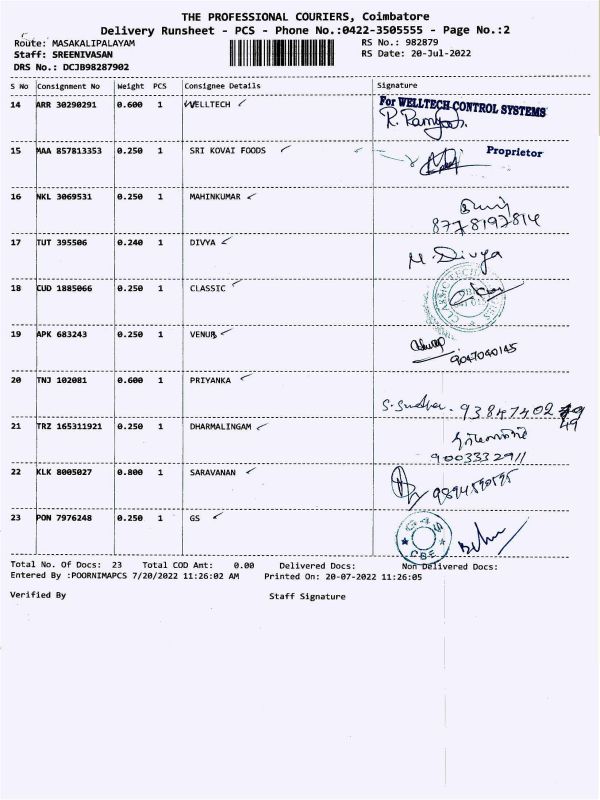 THE PROFESSIONAL COURIERS, Coimbatore
Delivery Runsheet - PCS - Phone No.:0422-3505555 - Page No.:2
Route: MASAKALIPALAYAM RS No.: 982879
Staff: SREENIVASAN RS Date: 20-Jul-2022
DRS No.: DCJB98287902
S No Consignment No Weight PCS Consignee Details Signature
14 ARR 30290291 0.600 1 WELLTECH For WELLTECH CONTROL SYSTEMS
Proprietor
15 MAA 857813353 0.250 1 SRI KOVAI FOODS
16 NKL 3069531 0.250 1 MAHINKUMAR
8778197814
17 TUT 395506 0.240 1 DIVYA M. Divya
18 CUD 1885066 0.250 1 CLASSIC
19 APK 683243 0.250 1 VENUS
9047040145
20 TNJ 102081 0.600 1 PRIYANKA
93847402
49
21 TRZ 165311921 0.250 1 DHARMALINGAM
9003332911
22 KLK 8005027 0.800 1 SARAVANAN
23 PON 7976248 0.250 1 GS
CBE
Total No. Of Docs: 23 Total COD Amt: 0.00 Delivered Docs: Non Delivered Docs:
Entered By :POORNIMAPCS 7/20/2022 11:26:02 AM Printed On: 20-07-2022 11:26:05
Verified By Staff Signature